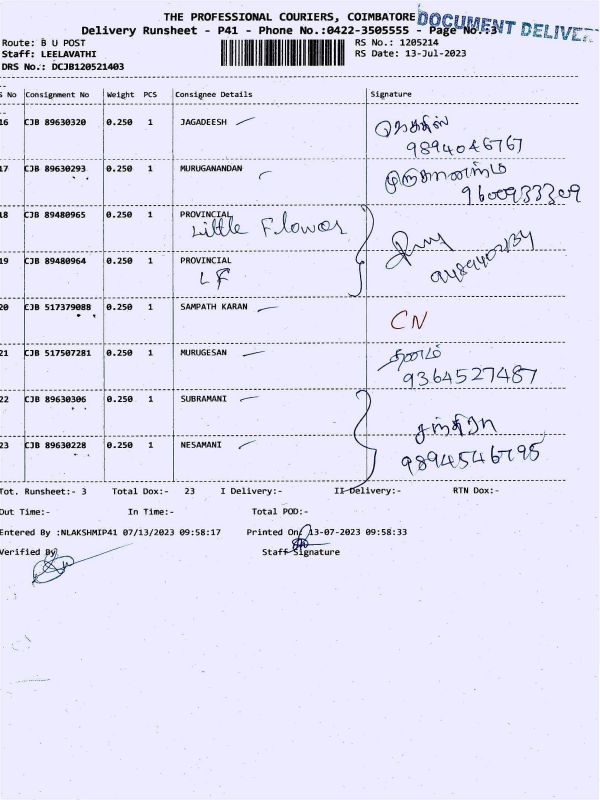 THE PROFESSIONAL COURIERS, COIMBATORE
DOCUMENT DELIVER
Delivery Runsheet - P41 - Phone No.:0422-3505555 - Page No.:3
Route: B U POST
RS No.: 1205214
Staff: LEELAVATHI
RS Date: 13-Jul-2023
DRS No.: DCJB120521403
S No Consignment No Weight PCS Consignee Details Signature
16 CJB 89630320 0.250 1 JAGADEESH ஜெகதீஸ்
9894046767
17 CJB 89630293 0.250 1 MURUGANANDAN முருகானந்தம்
9600933309
18 CJB 89480965 0.250 1 PROVINCIAL
Little Flower
19 CJB 89480964 0.250 1 PROVINCIAL
LF
20 CJB 517379088 0.250 1 SAMPATH KARAN CN
21 CJB 517507281 0.250 1 MURUGESAN
9364527487
22 CJB 89630306 0.250 1 SUBRAMANI
23 CJB 89630228 0.250 1 NESAMANI
9894546795
Tot. Runsheet:- 3 Total Dox:- 23 I Delivery:- II Delivery:- RTN Dox:-
Out Time:- In Time:- Total POD:-
Entered By :NLAKSHMIP41 07/13/2023 09:58:17 Printed On: 13-07-2023 09:58:33
Verified By Staff Signature